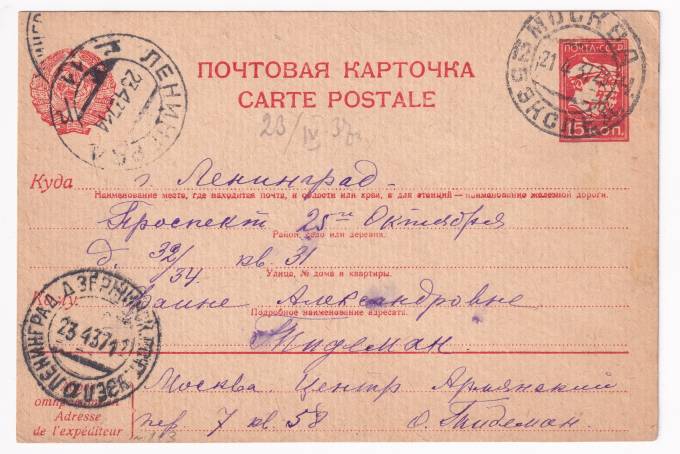 ПОЧТОВАЯ КАРТОЧКА
CARTE POSTALE
ПОЧТА СССР
15 коп.
МОСКВА
21 4 37
ЭКСПЕД
ЛЕНИНГРАД
23.4.37
23/IV 37г.
Куда г. Ленинград
Наименование места, где находится почта, и области или края, а для станций — наименование железной дороги.
Проспект 25го Октября
Район, село или деревня.
д. 32/34. кв. 31
Улица, № дома и квартиры.
Кому Александровне
Подробное наименование адресата.
Тидеман.
ЛЕНИНГРАД ДЗЕРЖИНСК
УЗЕЛ
23.4.37.12
Москва Центр Армянский
Adresse
пер. 7 кв. 58 О. Тидеман.
de l'expéditeur